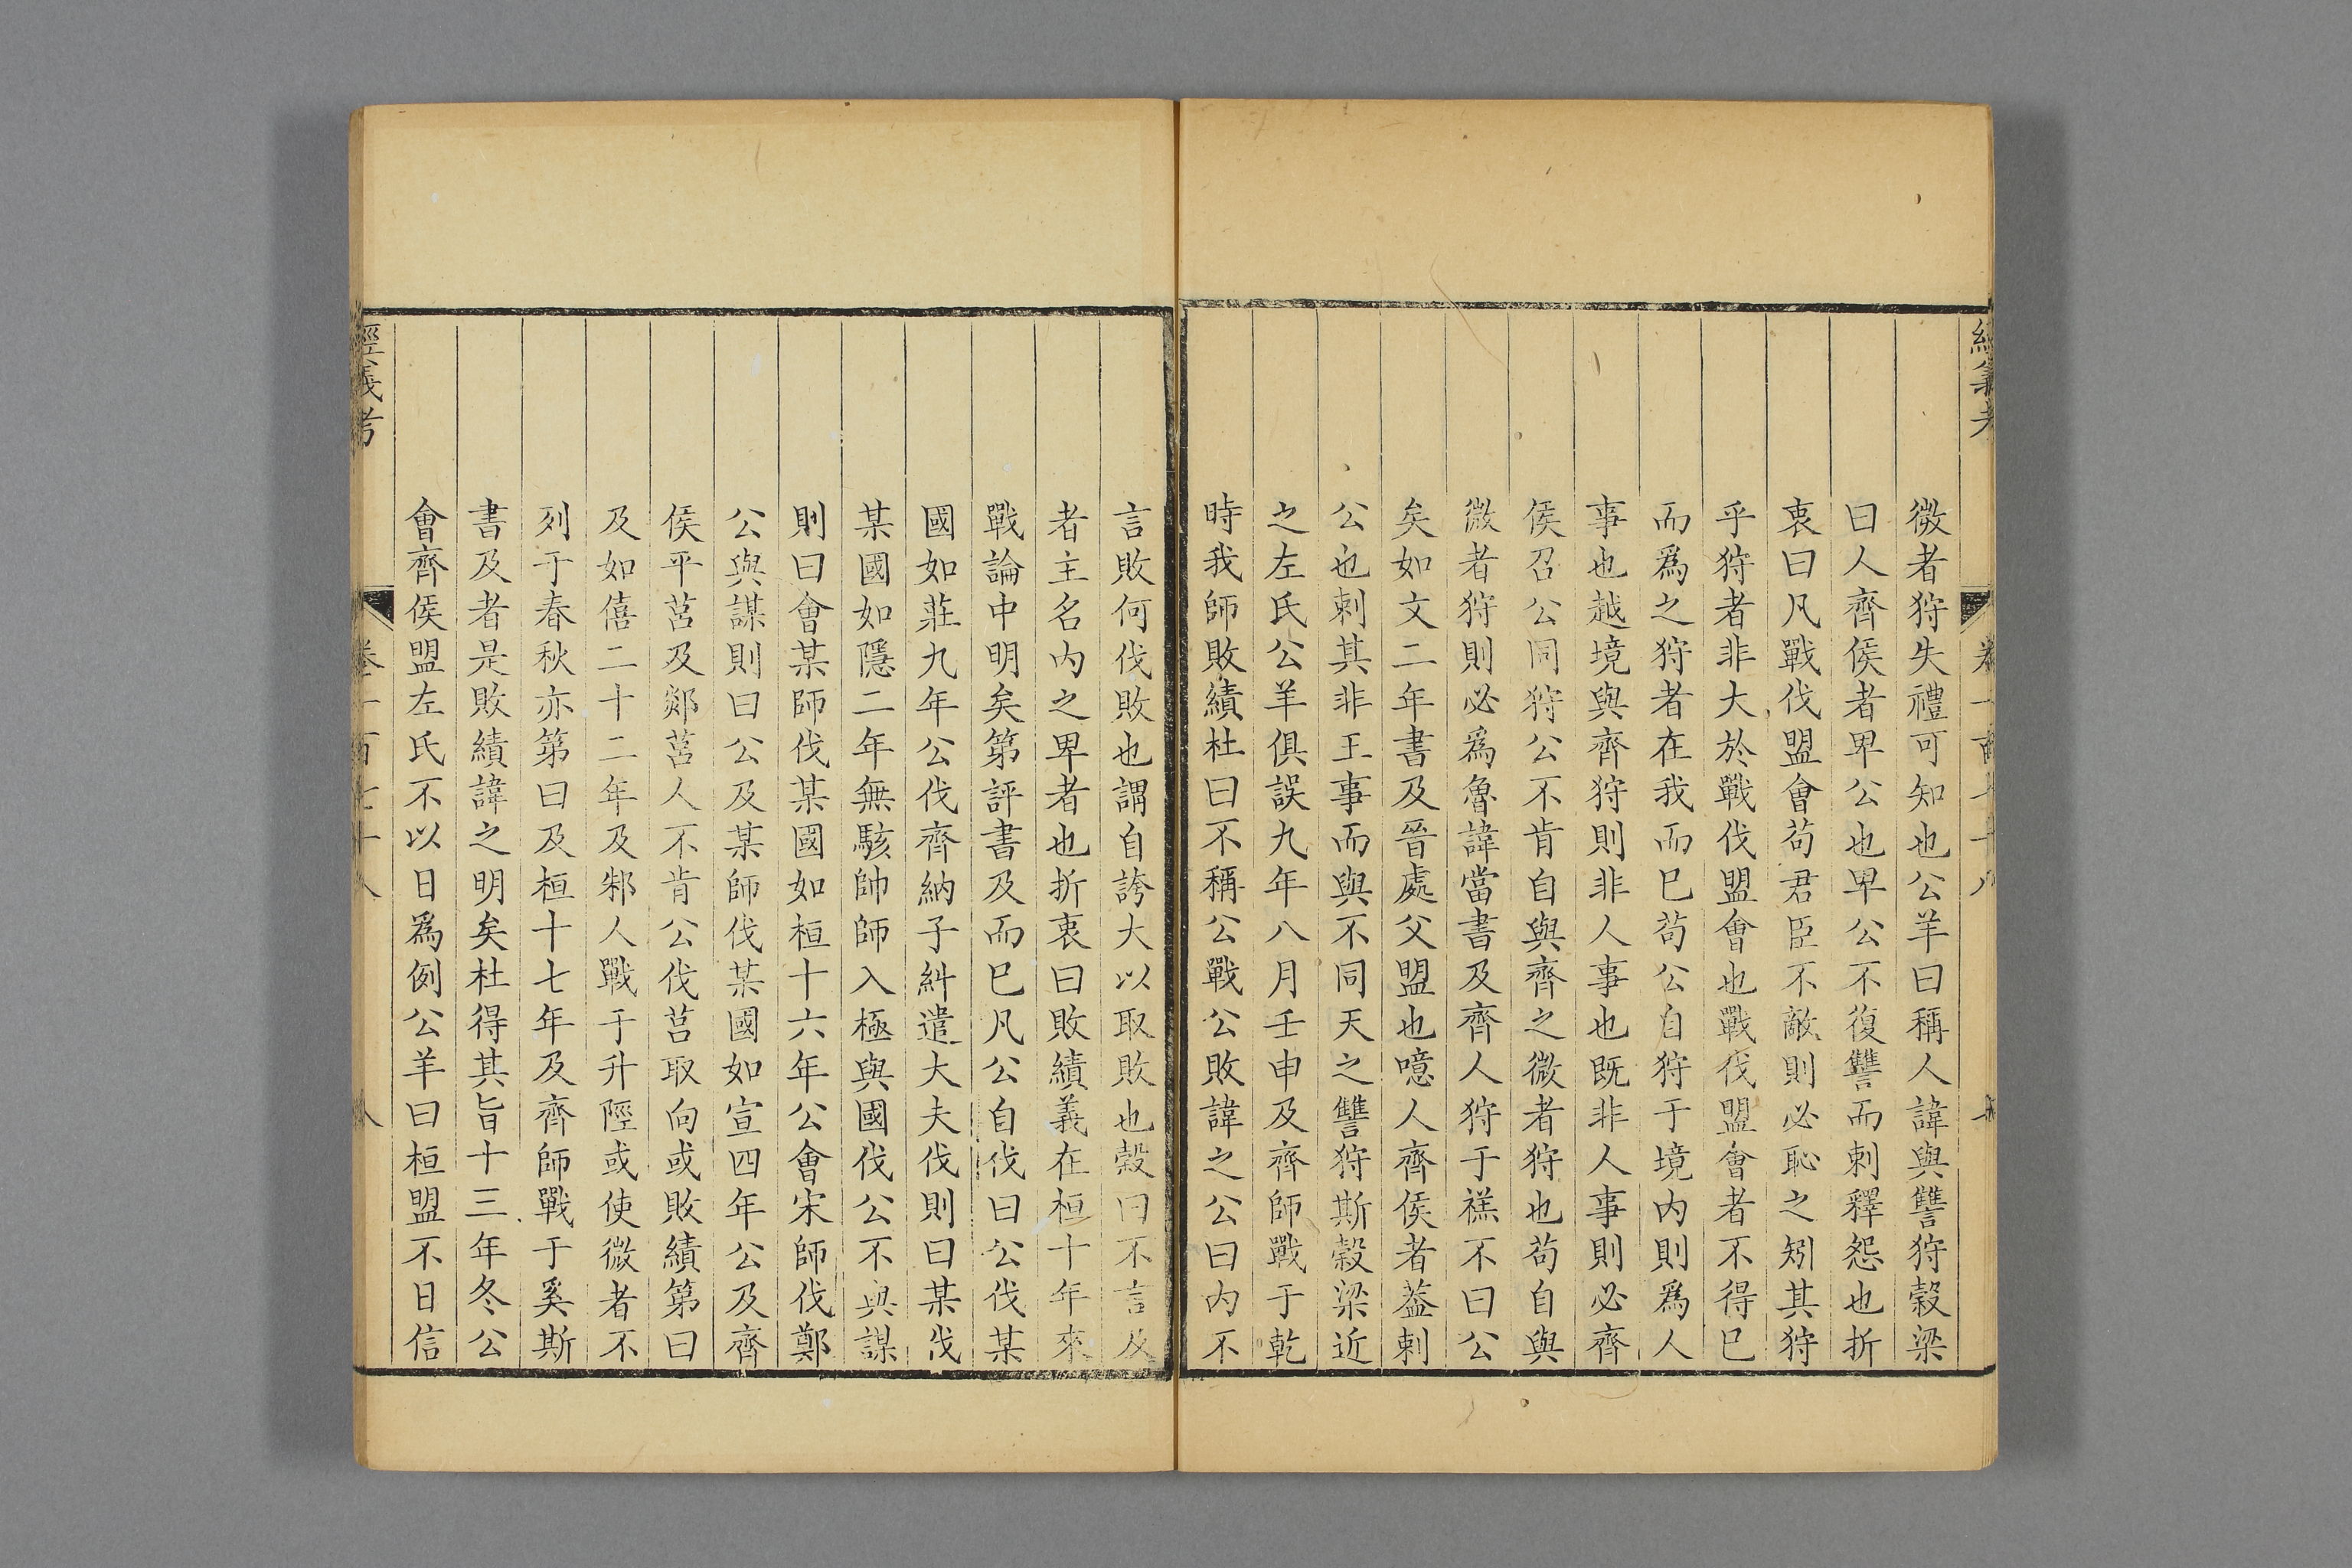 微者狩失禮可知也公羊曰稱人諱與讐狩榖梁
曰人齊侯者卑公也卑公不復讐而刺釋怨也折
衷曰凡戰伐盟會苟君臣不敵則必恥之矧其狩
乎狩者非大於戰伐盟會也戰伐盟會者不得巳
而爲之狩者在我而巳苟公自狩于境内則爲人
事也越境與齊狩則非人事也既非人事則必齊
侯召公同狩公不肯自與齊之微者狩也苟自與
微者狩則必爲魯諱當書及齊人狩于禚不曰公
矣如文二年書及晉處父盟也噫人齊侯者葢刺
公也刺其非王事而與不同天之讐狩斯榖梁近
之左氏公羊俱誤九年八月壬申及齊師戰于乾
時我師敗績杜曰不稱公戰公敗諱之公曰内不
言敗何伐敗也謂自誇大以取敗也榖曰不言及
者主名内之卑者也折衷曰敗績義在桓十年來
戰論中明矣第評書及而巳凡公自伐曰公伐某
國如莊九年公伐齊納子糾遣大夫伐則曰某伐
某國如隱二年無駭帥師入極與國伐公不與謀
則曰會某師伐某國如桓十六年公會宋師伐鄭
公與謀則曰公及某師伐某國如宣四年公及齊
侯平莒及郯莒人不肯公伐莒取向或敗績第曰
及如僖二十二年及邾人戰于升陘或使微者不
列于春秋亦第曰及桓十七年及齊師戰于奚斯
書及者是敗績諱之明矣杜得其旨十三年冬公
會齊侯盟左氏不以日爲例公羊曰桓盟不日信
經義考
卷一百七十八
八